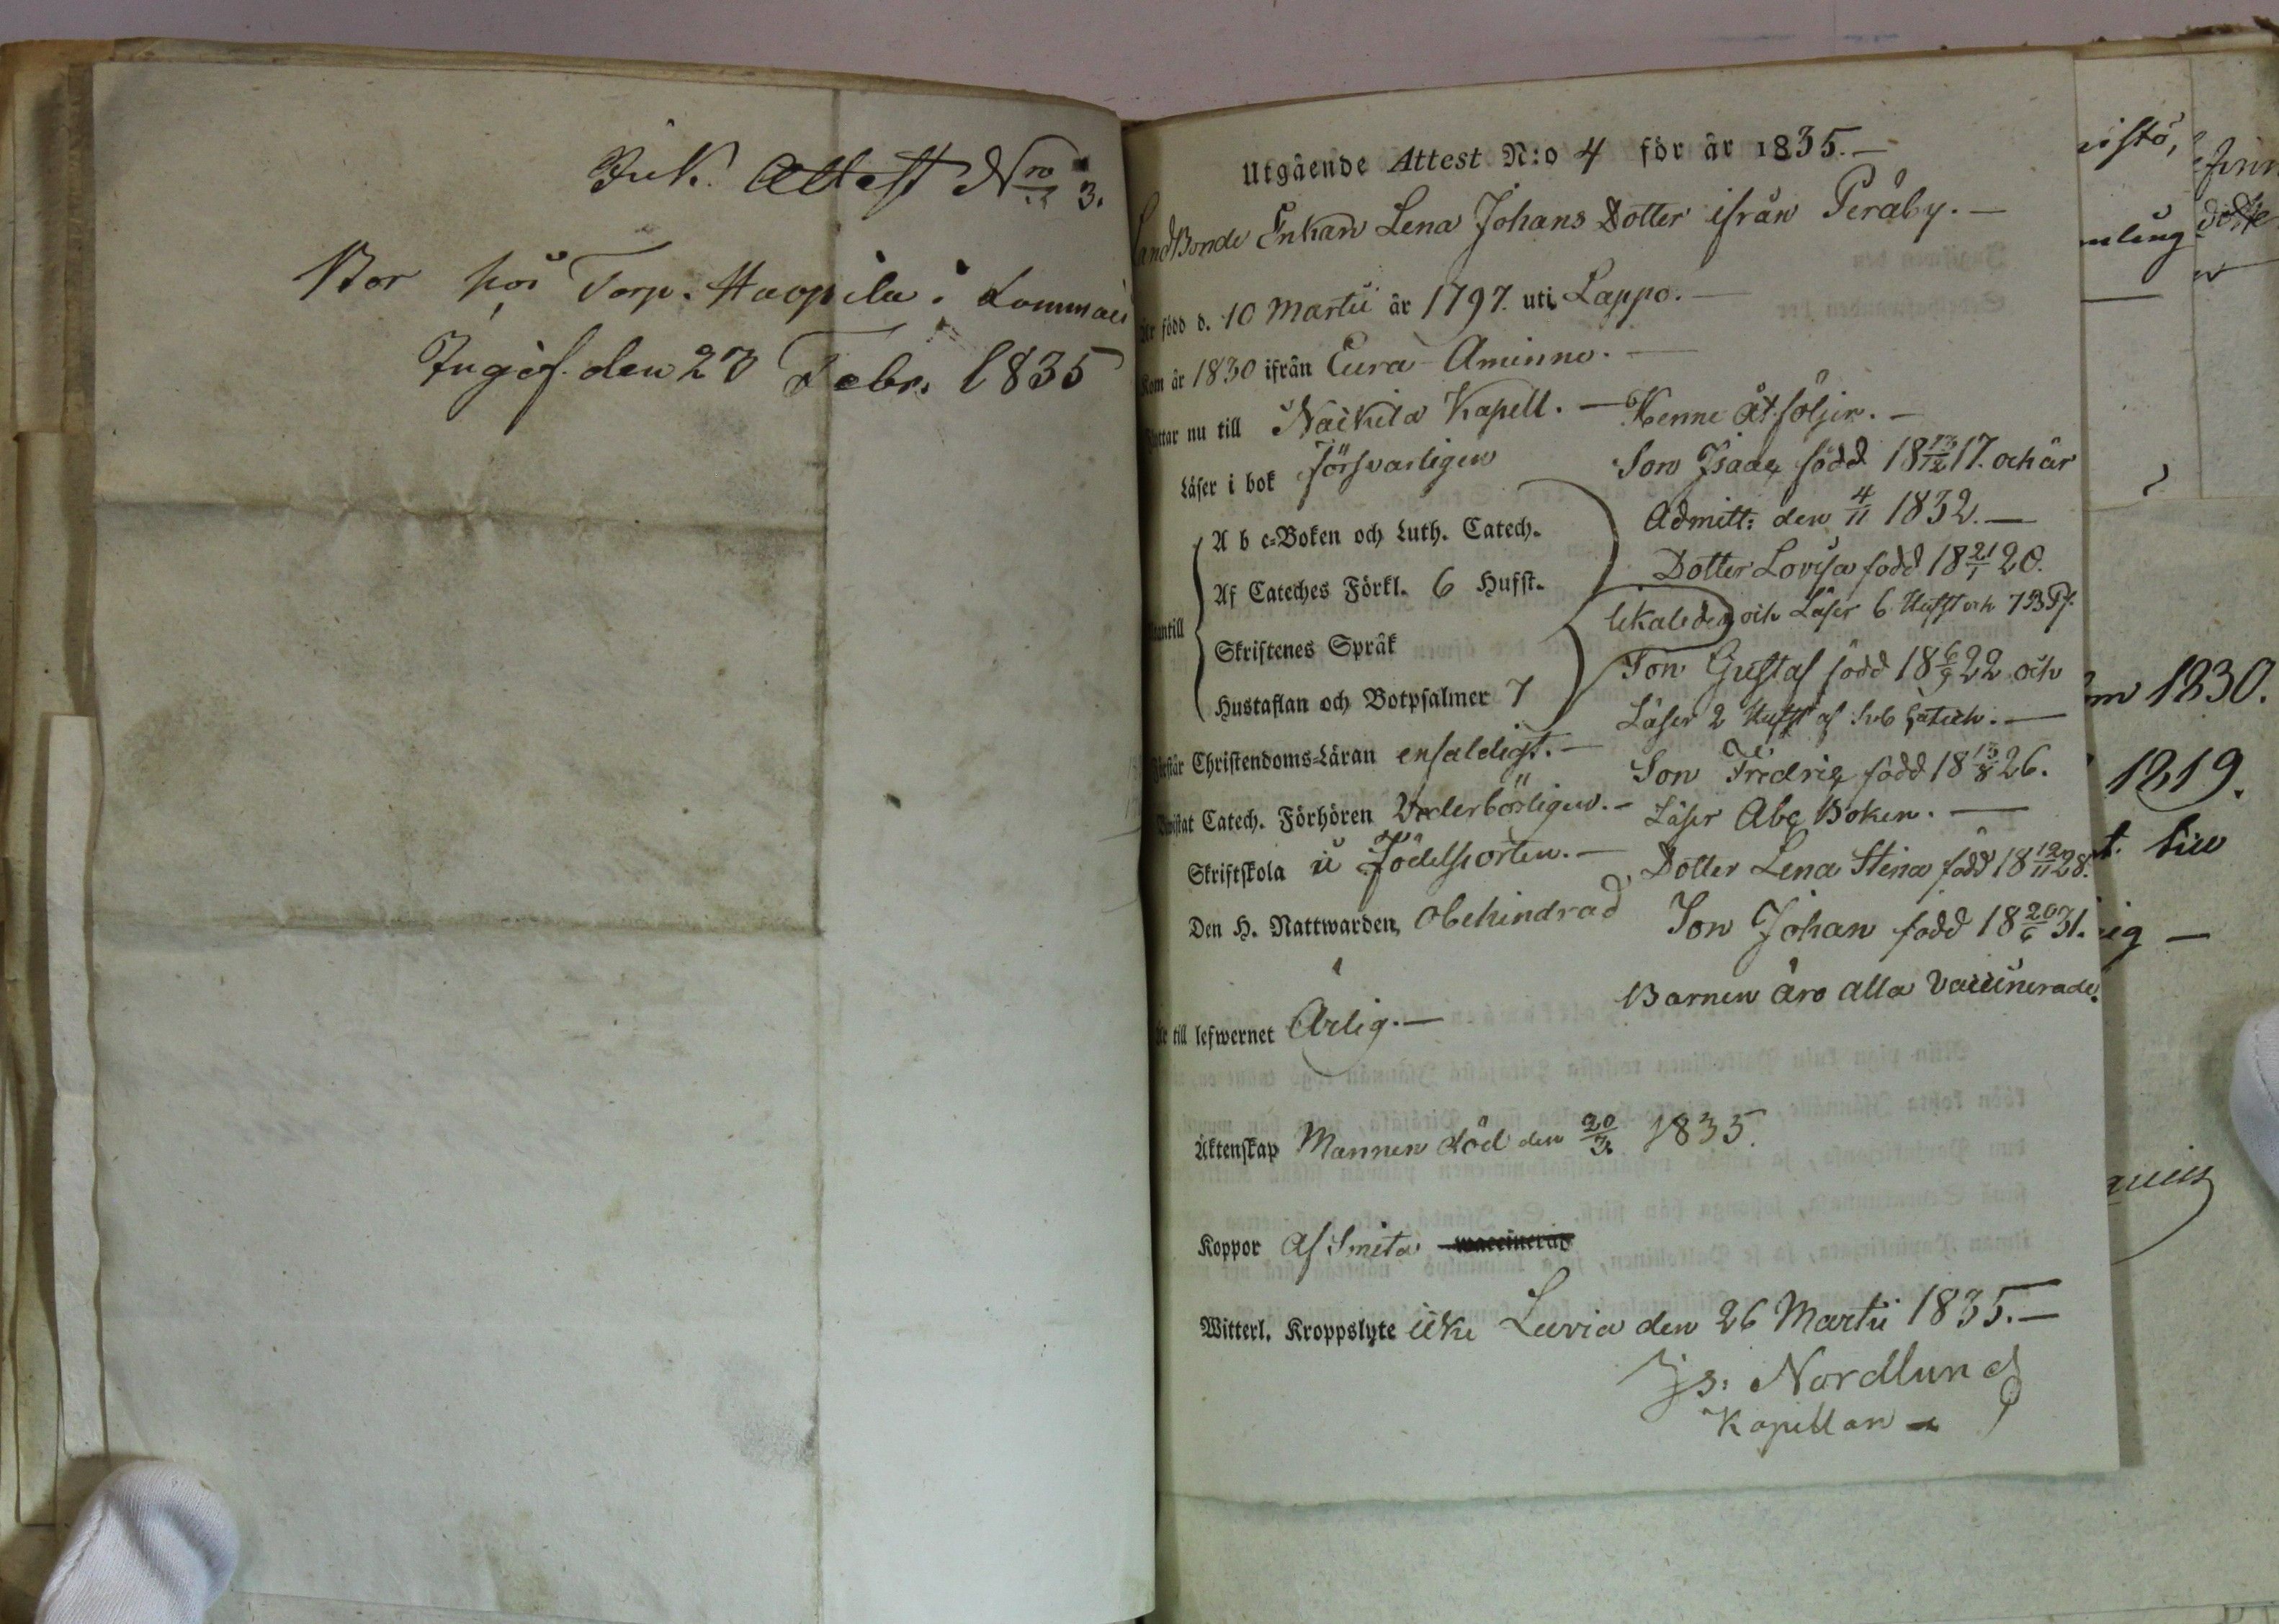 Ink. Attest Nro 3.
Bor hos Torp. Haapila i Lommais
Ingaf. den 23 Febr. 1835
Utgående Attest N:o 4 för år 1835.—
LandBonde Enkan Lena Johans Dotter ifrån Peräby.—
Är född d. 10 Martii år 1797. uti Lappo.—
Kom år 1830 ifrån Eura Åminno.—
Flyttar nu till Nackila Kapell.—
Läser i bok försvarligen
Utantill
A b c-Boken och Luth. Catech.
Af Cateches Förkl. 6 Hufst.
Skriftenes Språk
Hustaflan och Botpsalmer 7
Förstår Christendoms-Läran enfaldigt.—
Bewistat Catech. Förhören Vederbörligen.—
Skriftskola i Födelseorten.—
Den H. Nattwarden, Obehindrad
Är till lefwernet Ärlig.—
Äktenskap Mannen död den 20/3. 1835.
Koppor Af Smeta waccinerad
Witterl. Kroppslyte icke
Henne åtföljer.—
Son Isaac född 18 13/12 17. och är
Admitt: den 4/11 1832.—
Dotter Lovisa född 18 21/1 20.
likaledes och Läser 6 Hufst och 7 B Ps.
Son Gustaf född 18 6/9 22 och
Läser 2 Hufst af Catech.—
Son Fredric född 18 13/8 26.
Läser Abc Boken.—
Dotter Lena Stina född 18 12/11 28.
Son Johan född 18 20/6 31.
Barnen äro alla Vaccinerade.
Luvia den 26 Martii 1835.—
Is: Nordlund
Kapellan
istö,
mling
m 1830.
1819.
t.
ig —